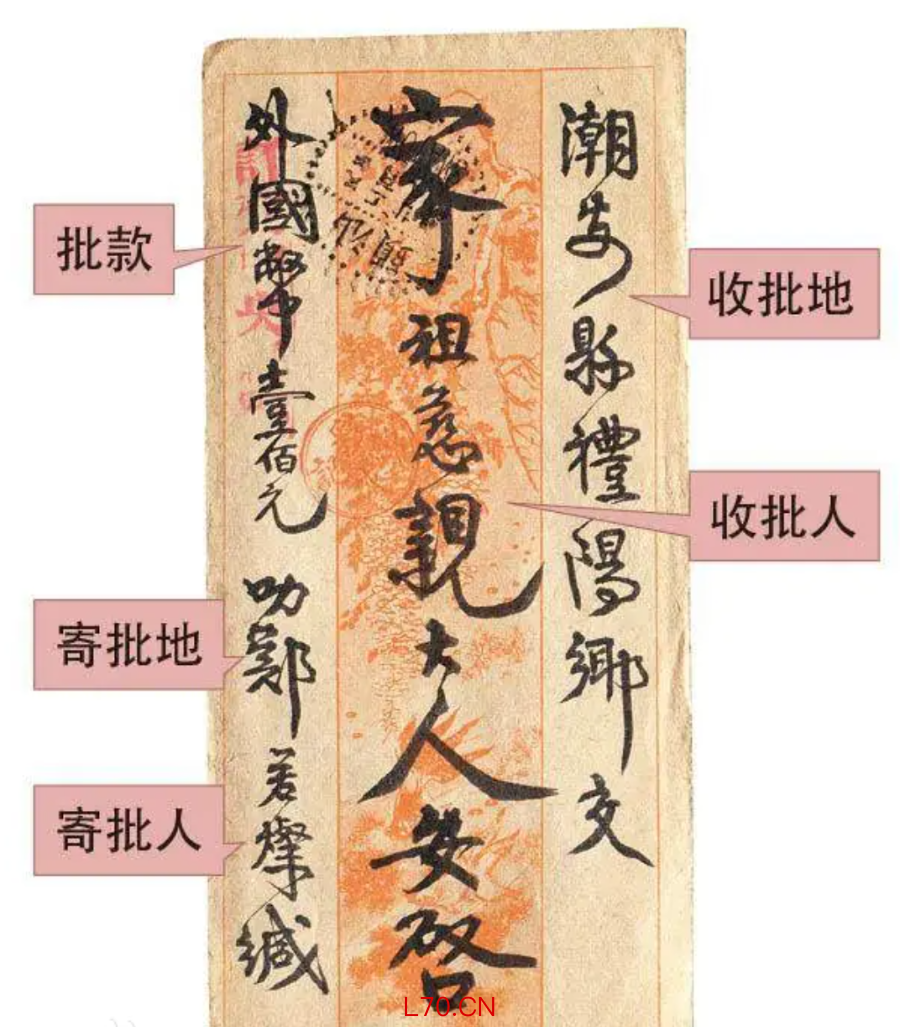 潮安縣禮陽鄉交
家祖慈親大人安啟
外國幣壹佰元
叻鄭若燦緘
批款
收批地
收批人
寄批地
寄批人
L70.CN